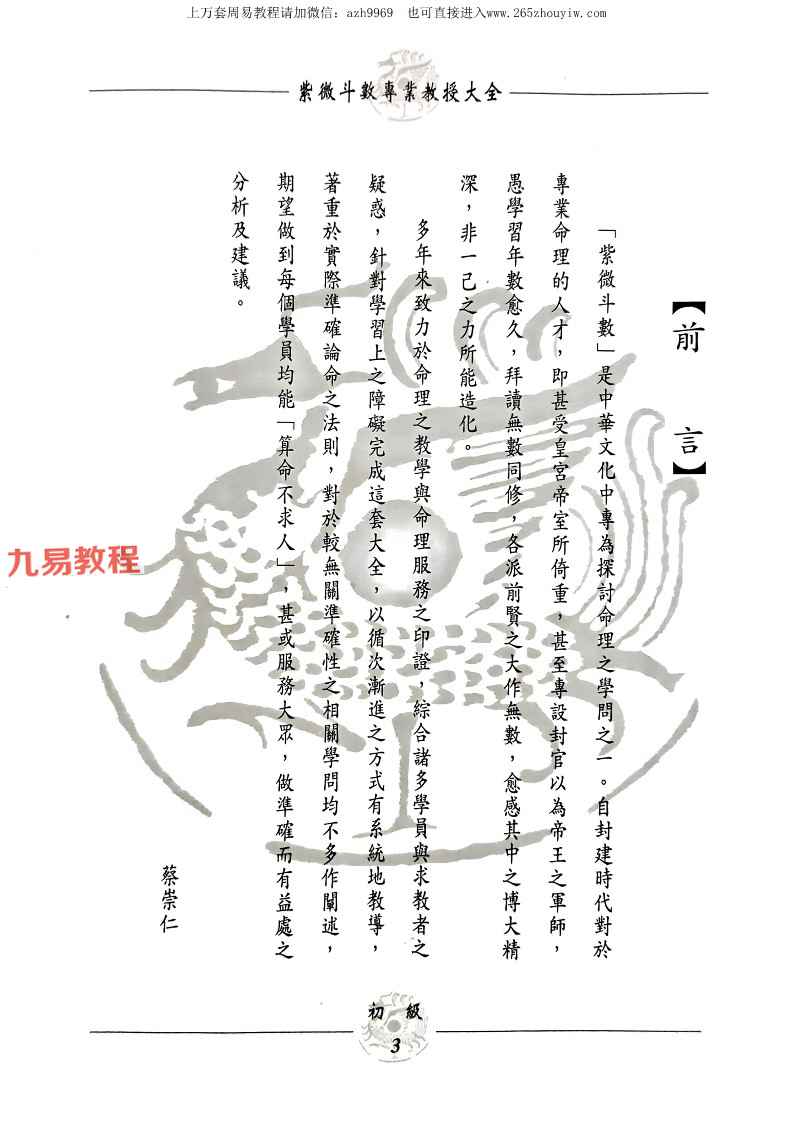 上万套周易教程请加微信：azh9969　也可直接进入www.265zhouyiw.com
紫微斗數專業教授大全
【前言】
「紫微斗數」是中華文化中專為探討命理之學問之一。自封建時代對於
專業命理的人才，即甚受皇宮帝室所倚重，甚至專設封官以為帝王之軍師，
愚學習年數愈久，拜讀無數同修，各派前賢之大作無數，愈感其中之博大精
深，非一己之力所能造化。
多年來致力於命理之教學與命理服務之印證，綜合諸多學員與求教者之
疑惑，針對學習上之障礙完成這套大全，以循次漸進之方式有系統地教導，
著重於實際準確論命之法則，對於較無關準確性之相關學問均不多作闡述，
期望做到每個學員均能「算命不求人」，甚或服務大眾，做準確而有益處之
分析及建議。
蔡崇仁
九易教程
初級
3